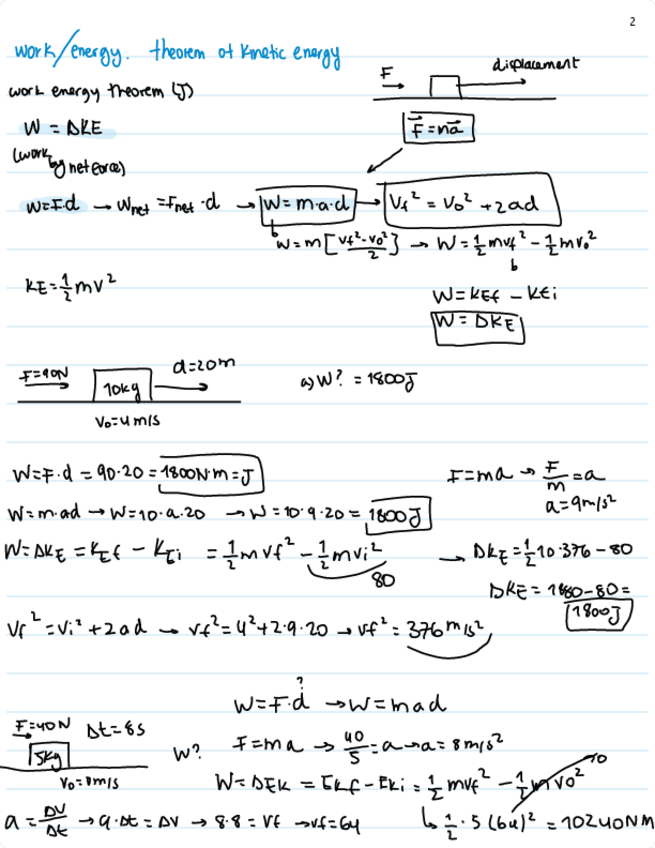 2
work/energy. theorem of kinetic energy
F displacement
work energy theorem (J)
F = ma
W = ΔKE
(work by net force)
W=F.d → Wnet = Fnet · d → W = m·a·d → Vf² = Vo² + 2ad
W = m[Vf²-Vo²/2] → W = 1/2 mvf² - 1/2 mvo²
KE = 1/2 mv²
W = KEf - KEi
W = ΔKE
F=90N 10kg d=20m
a) W? = 1800J
Vo=4m/s
W=F.d = 90.20 = 1800N.m = J
F=ma → F/m = a
a=9m/s²
W=m.ad → W=10.a.20 → W=10.9.20 = 1800J
W=ΔKE = KEf - KEi = 1/2 mvf² - 1/2 mvi² → ΔKE = 1/2 10.376 - 80
80
ΔKE = 1880-80 = 1800J
Vf² = Vi² + 2ad → vf² = 4² + 2.9.20 → vf² = 376 m/s²
?
W=F.d → W=mad
F=40N Δt=8s
5kg
W?
F=ma → 40/5 = a → a=8m/s²
Vo=0m/s
W=ΔEK = EKf - EKi = 1/2 mvf² - 1/2 mvo² 0
a = ΔV/Δt → a.Δt = ΔV → 8.8 = Vf → vf=64
↳ 1/2 . 5 (64)² = 10240NM